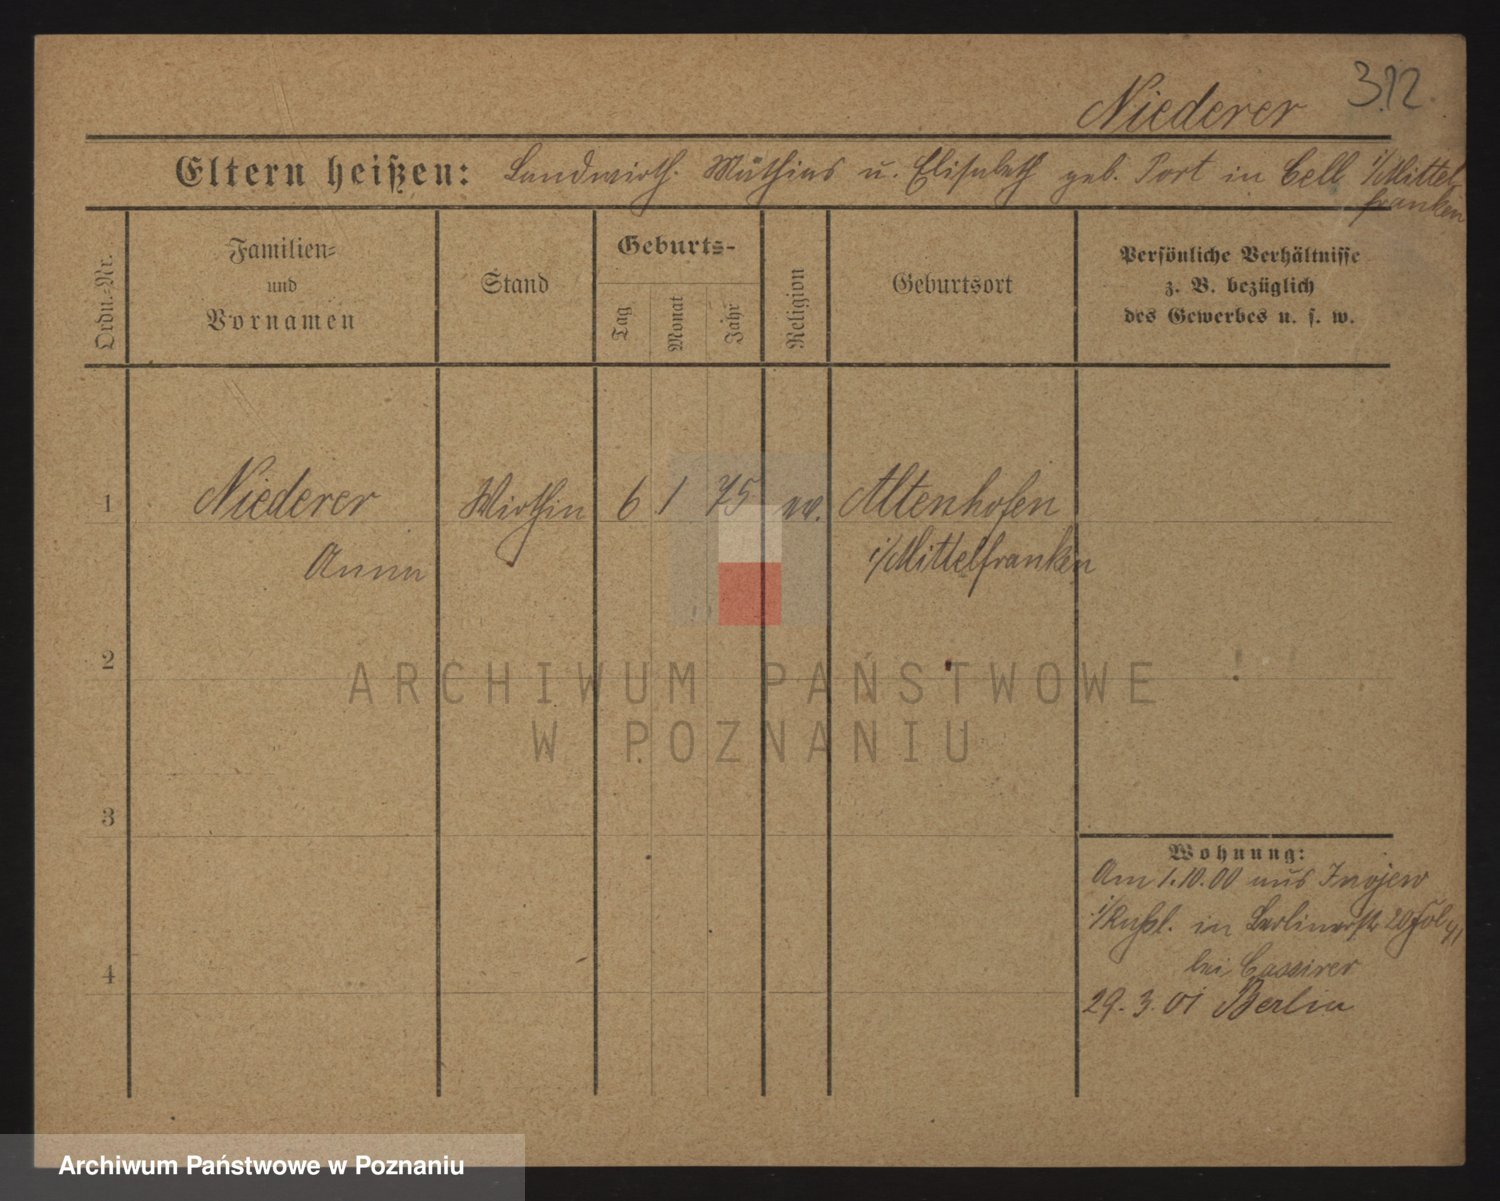 Niederer 312.
Eltern heißen: Landwirth. Mathias u. Elisabeth geb. Port in Cell i/Mittel
franken
Ordn.-Nr.
Familien-
und
Vornamen
Stand
Geburts-
Tag
Monat
Jahr
Religion
Geburtsort
Persönliche Verhältnisse
z. B. bezüglich
des Gewerbes u. s. w.
1 Niederer Wirthin 6 1 75 ev. Altenhofen
Anna i/Mittelfranken
2
ARCHIWUM PAŃSTWOWE
W POZNANIU
3
Wohnung:
Am 1.10.00 aus
i/Rußl. in Berlinerstr 20
4
bei Cassirer
29.3.01 Berlin
Archiwum Państwowe w Poznaniu